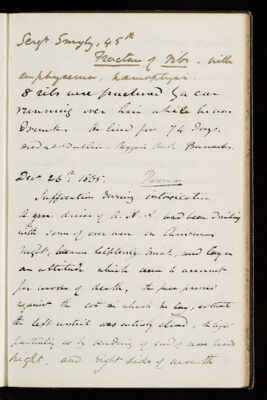 Sergt Smyly, 45th
Fracture of Ribs, with
emphysema, hæmoptysis.
8 ribs were fractured by a car
running over him while he was
Drunk. He lived for 7½ Days.
Died at Dublin. Barracks.
Decr 26th. 1835. Poona
Suffocation during intoxication.
A gunner of H. A. had been drinking
with some of our men on Christmas
night, became helplessly drunk, and lay in
an attitude which seems to account
for mode of death, the face pressed
against the cot on which he lay, so that
the left nostril was entirely closed, the
partially so by of one hand
right, and right side of mouth